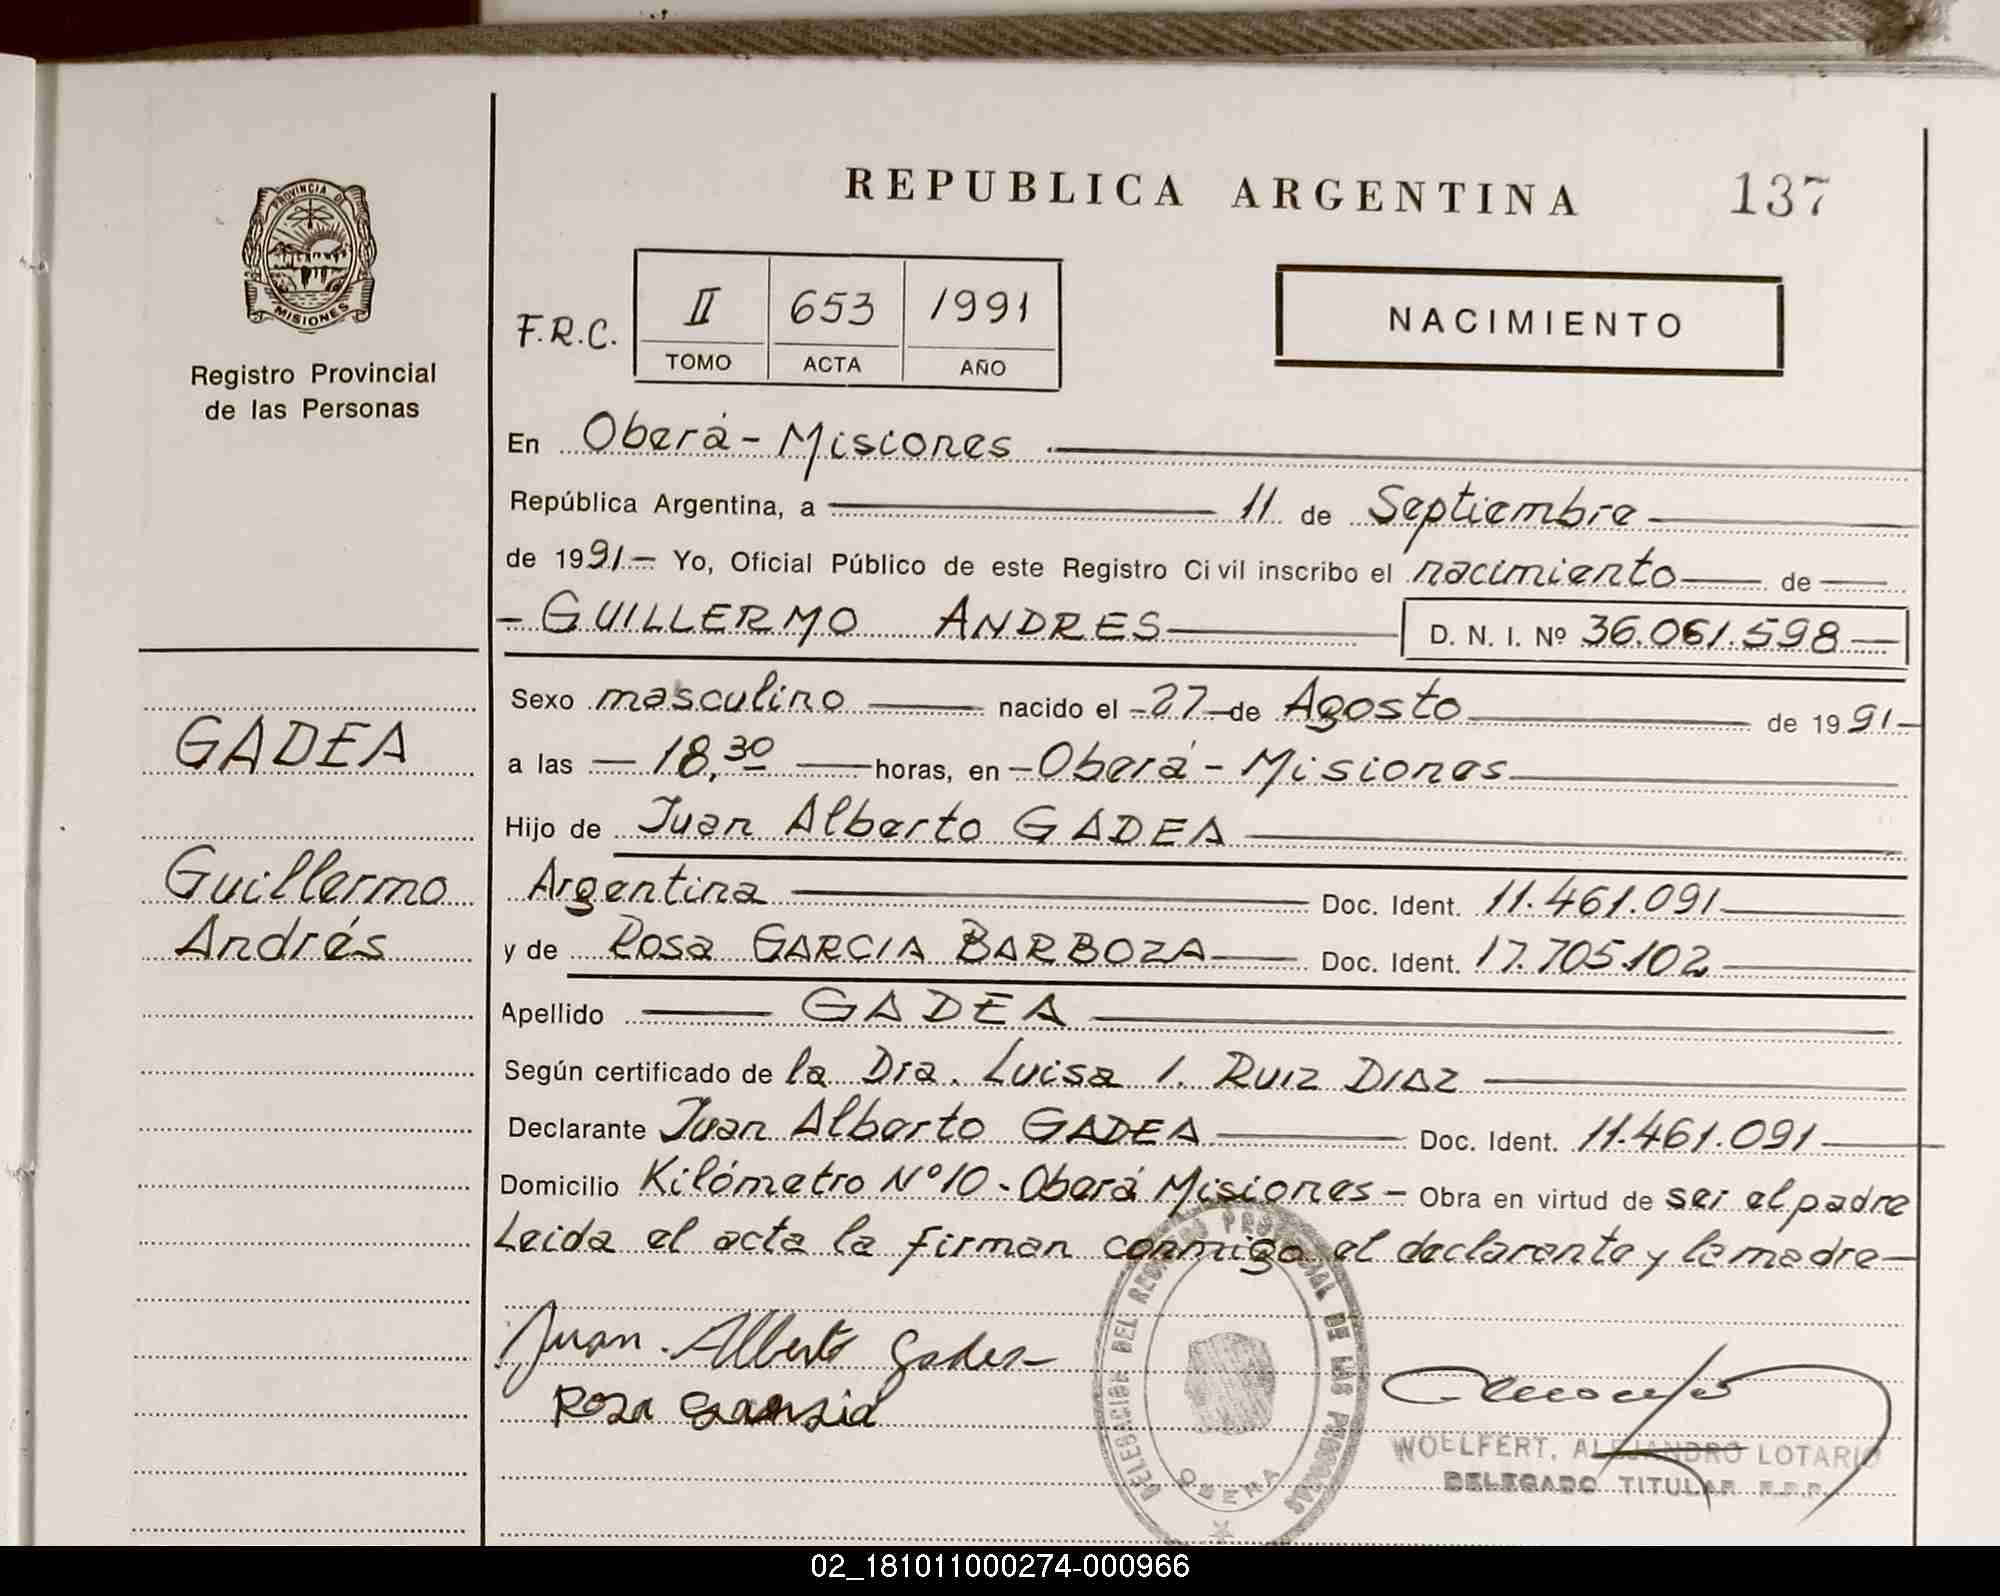 REPUBLICA ARGENTINA 137
PROVINCIA DE
MISIONES
Registro Provincial
de las Personas
F.R.C. II 653 1991
TOMO ACTA AÑO
NACIMIENTO
En Oberá - Misiones
República Argentina, a 11 de Septiembre
de 1991 - Yo, Oficial Público de este Registro Civil inscribo el nacimiento de
- GUILLERMO ANDRES D. N. I. Nº 36.061.598
Sexo masculino nacido el -27- de Agosto de 1991-
GADEA
a las - 18,30 - horas, en - Oberá - Misiones
Hijo de Juan Alberto GADEA
Guillermo
Andrés
Argentina Doc. Ident. 11.461.091
y de Rosa GARCIA BARBOZA Doc. Ident. 17.705.102
Apellido GADEA
Según certificado de la Dra. Luisa I. RUIZ DIAZ
Declarante Juan Alberto GADEA Doc. Ident. 11.461.091
Domicilio Kilómetro Nº 10 - Oberá Misiones - Obra en virtud de ser el padre
Leida el acta la firman conmigo el declarante y la madre -
Juan Alberto Gadea
Rosa
DELEGACIÓN DEL REGISTRO PROVINCIAL DE LAS PERSONAS
OBERA
WOELFERT, ALEJANDRO LOTARIO
DELEGADO TITULAR R.P.P.
02_181011000274-000966